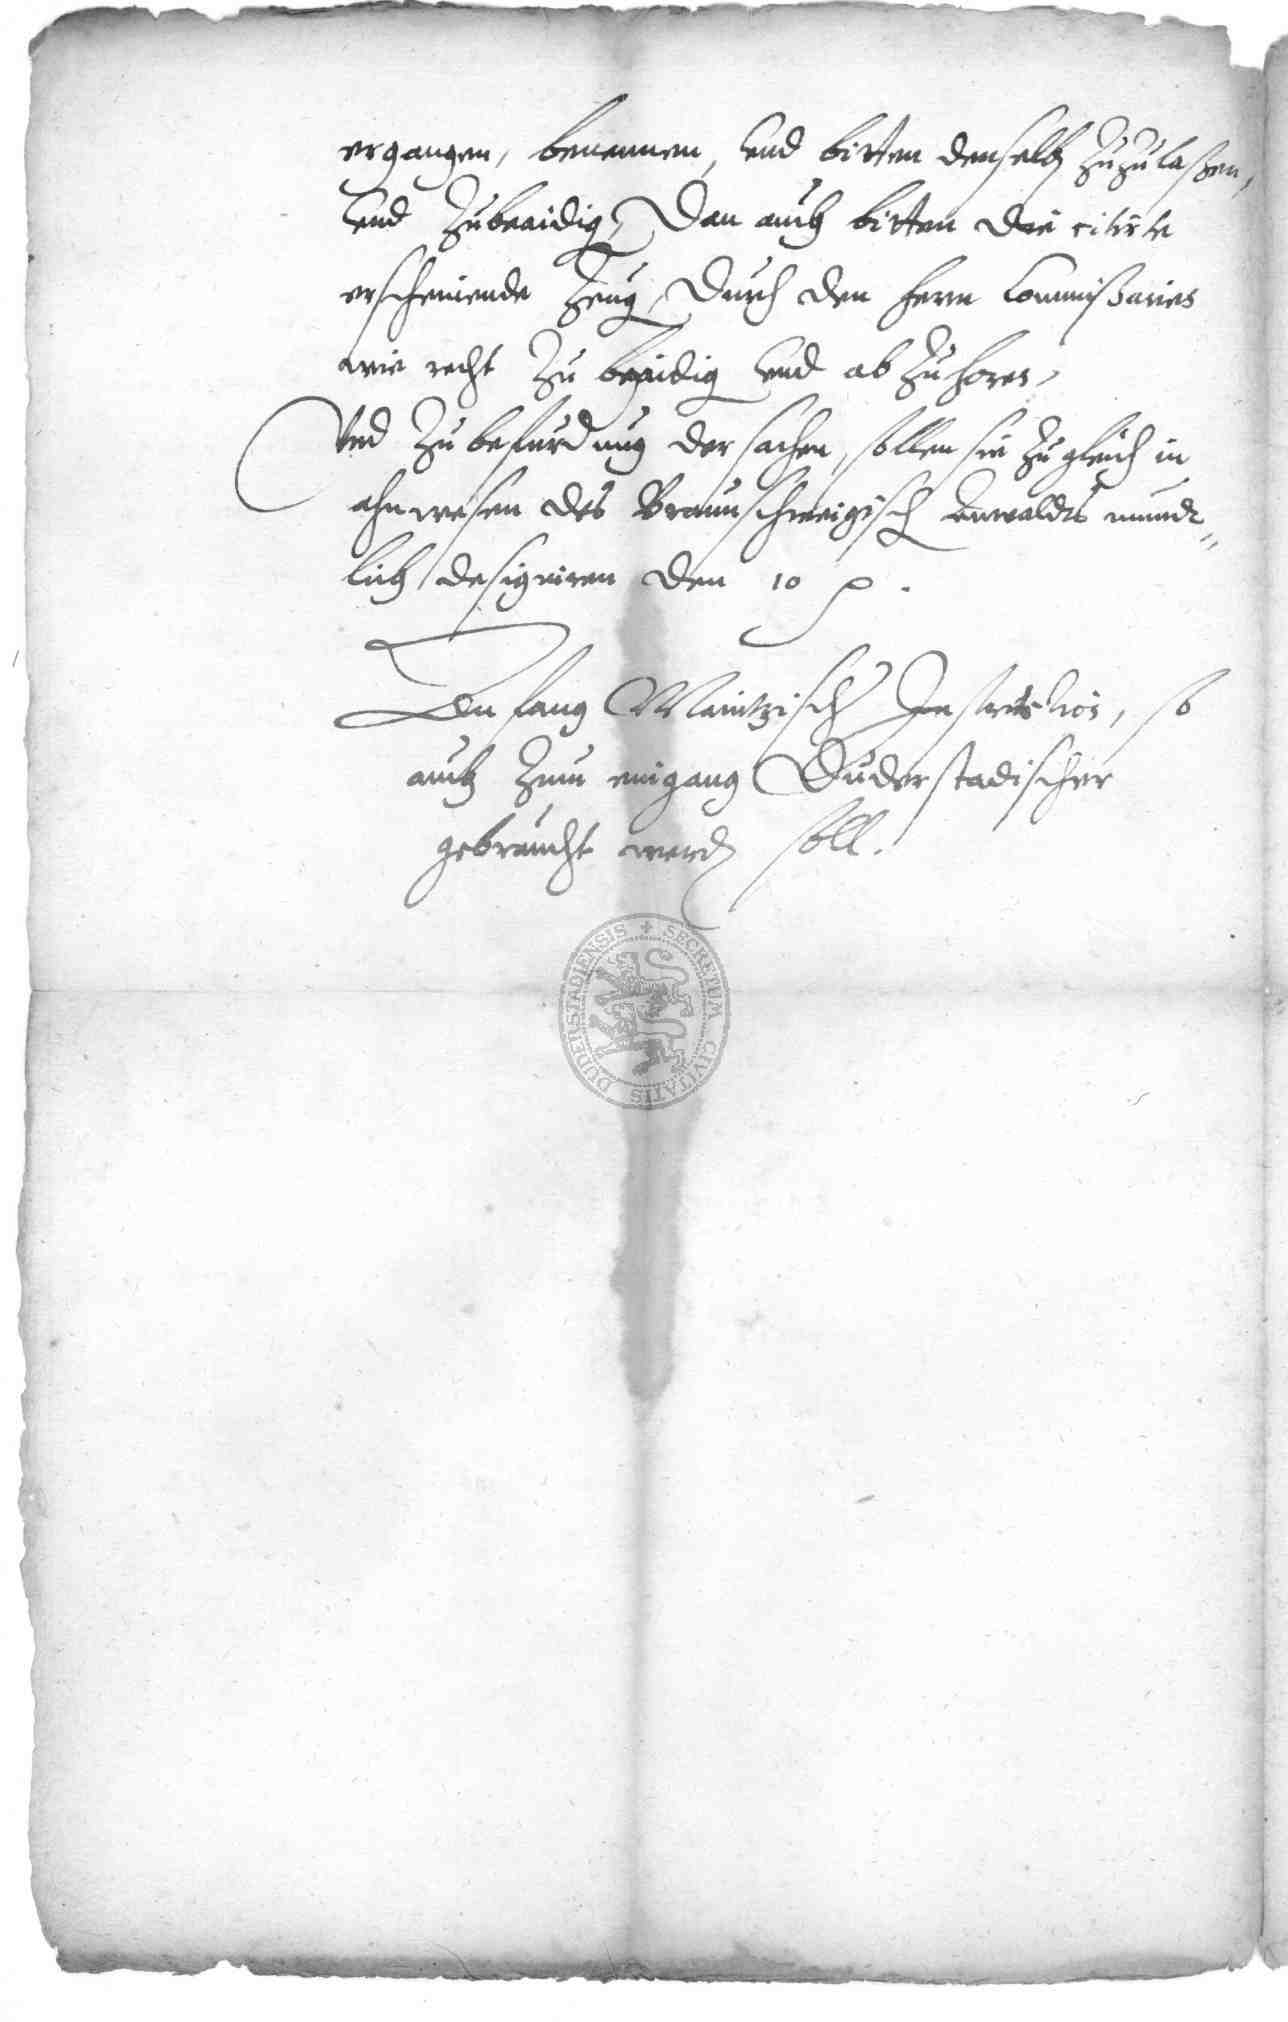 ergangen, benennen, vnd bitten denselb zuzulaßen,
vnd zubeaidig, Dan auch bitten die citirte
erscheinende Zeug, durch den herrn Commißaries
wie recht zu beaidig vnd ab zuhoren,
Vnd zu befurdrung der sachen, sollen sie zu gleich in
ahnwesen des Braunschweigisch Anwaldts mundt„
lich designiren den 10
Anfang Maintzisch Instruction, so
auch zum eingang Duderstadischer
gebraucht werd soll.
SECRETUM CIVITATIS DUDERSTADIENSIS